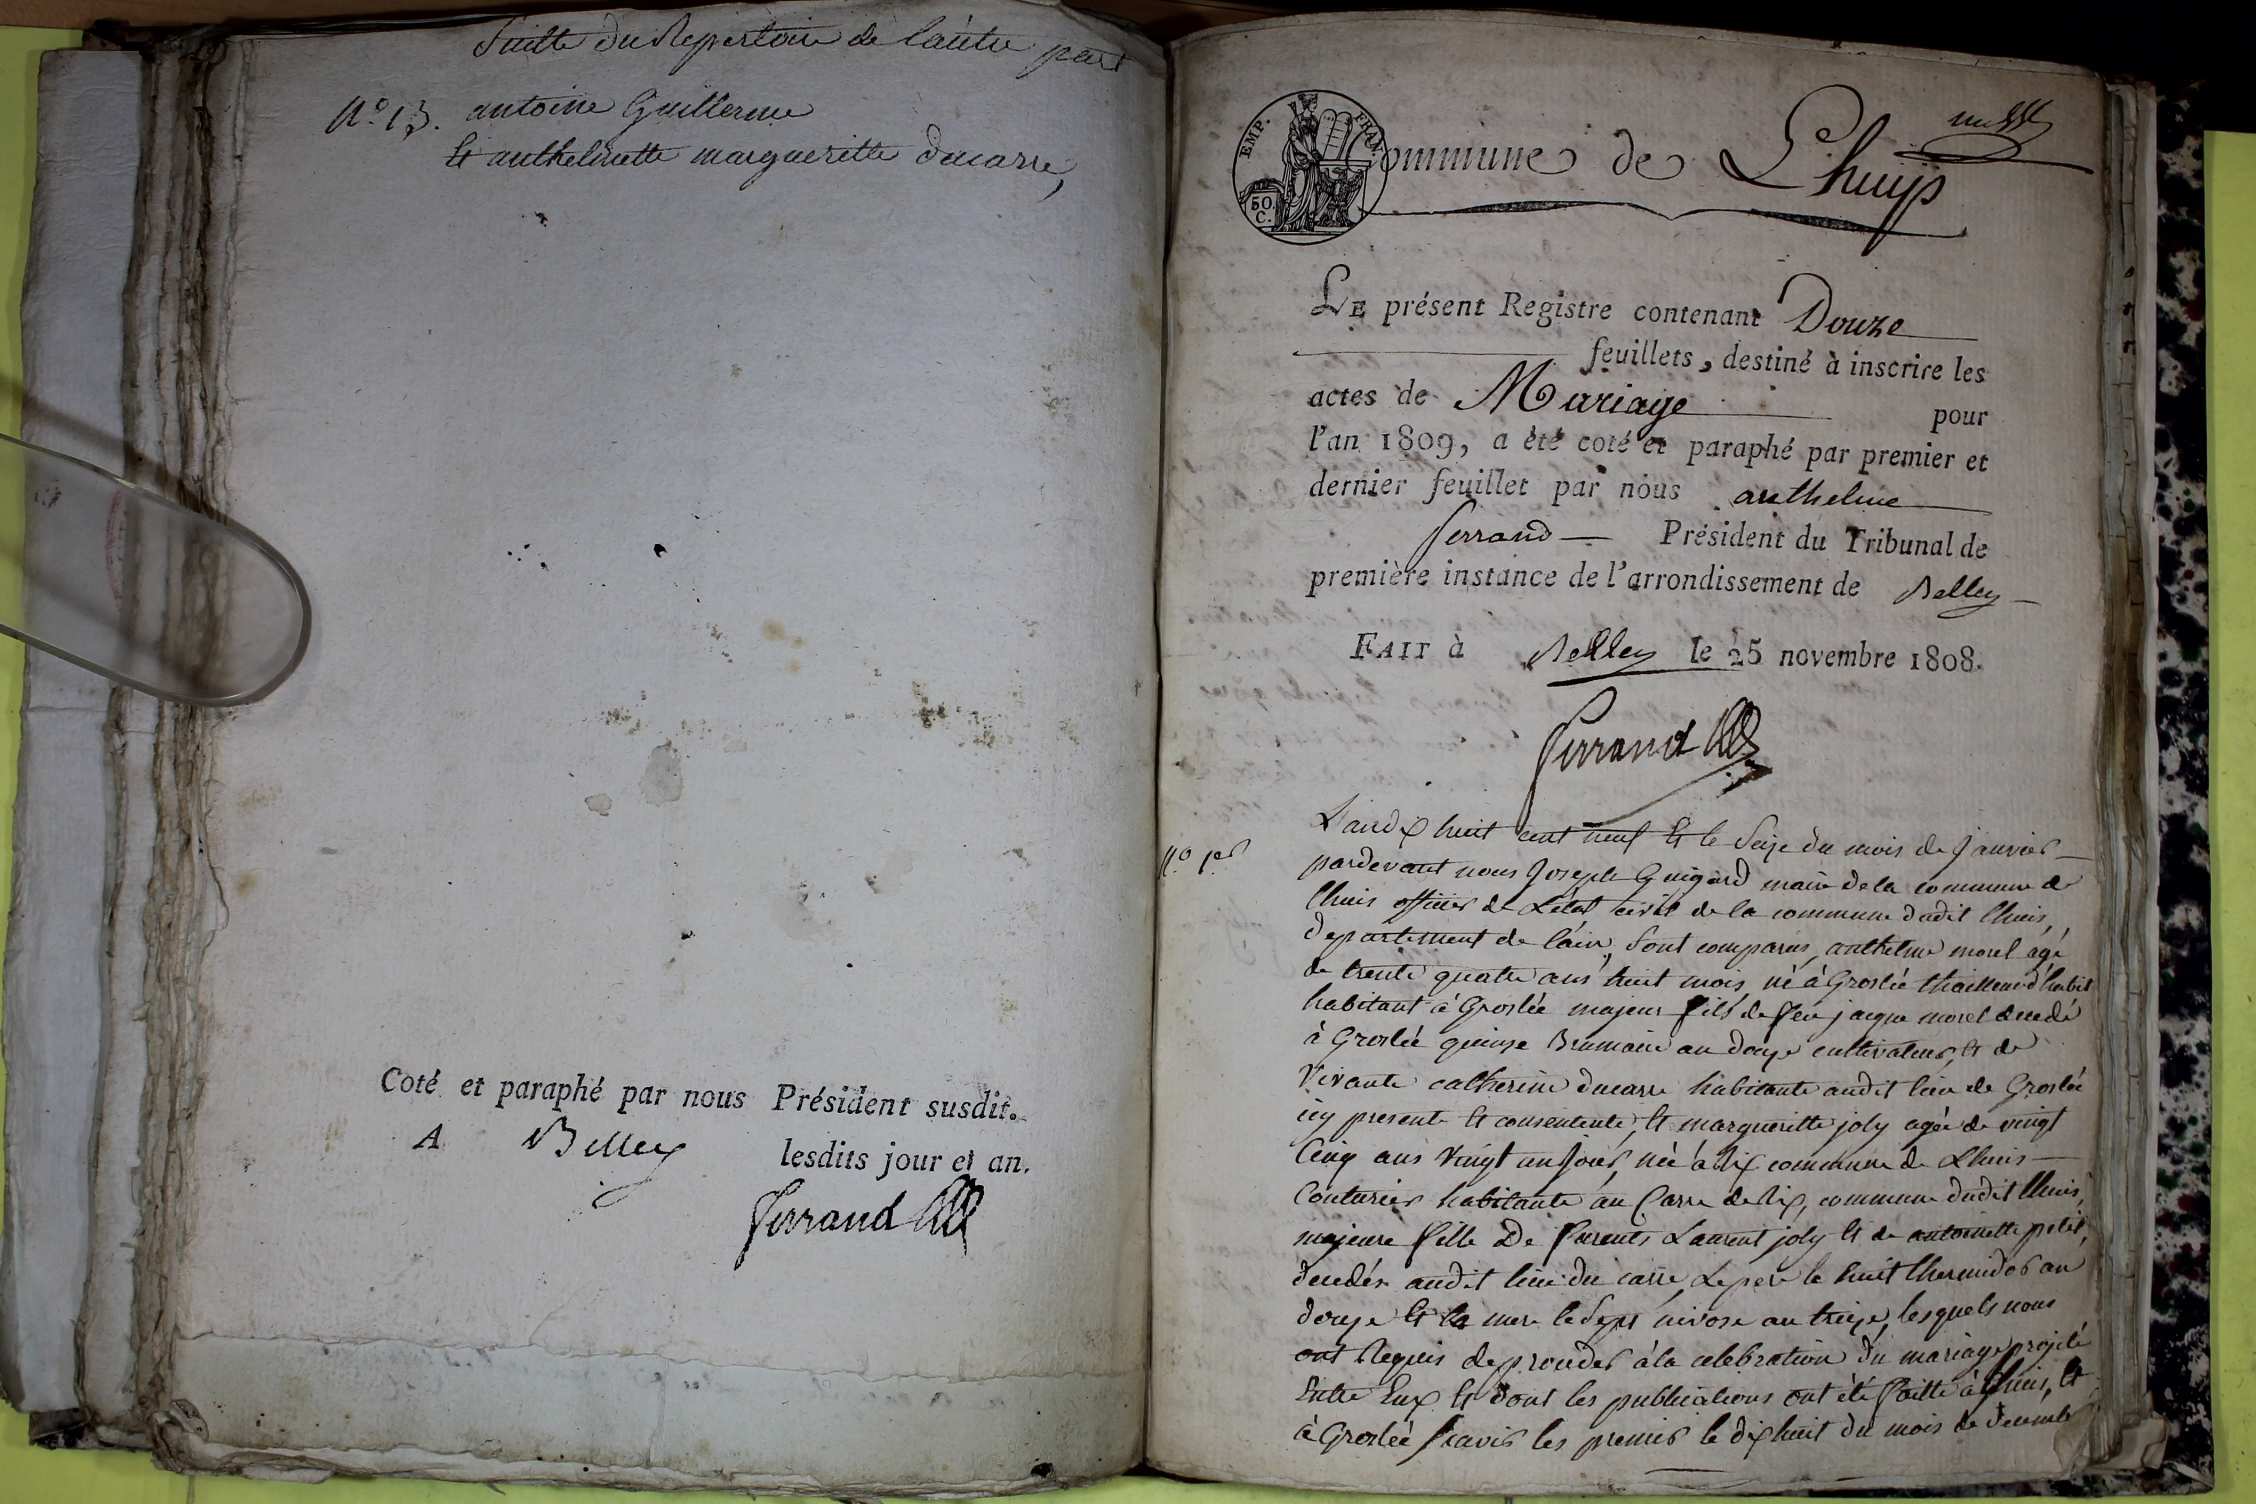 Suitte du Repertoire de l'autre part
N.o 13. antoine Guillerme
Et anthelmette margueritte ducarre,
Coté et paraphé par nous Président susdit.
A Belley lesdits jour et an.
Ferrand
EMP. FRAN.
50. C.
Commune de Lhuys
Le présent Registre contenant Douze
feuillets, destiné à inscrire les
actes de Mariage pour
l'an 1809, a été coté et paraphé par premier et
dernier feuillet par nous anthelme
ferrand Président du Tribunal de
première instance de l'arrondissement de Belley
FAIT à Belley le 25 novembre 1808.
Ferrand
N.o 1er
L'an dix huit cent neuf Et le Seize du mois de Janvier
pardevant nous Joseph Guigard maire de la commune de
lhuis officier de L'etat civil de la commune dudit lhuis,
departement de l'ain, Sont comparus, anthelme morel agé
de trente quatre ans huit mois né à Groslée thailleur d'habit
habitant à Groslée majeur fils de feu jacque morel decedé
à Groslée quinze Brumaire an douze cultivateur, Et de
Vivante catherine ducarre habitante audit lieu de Groslée
icy presente Et consentente, Et margueritte joly agée de vingt
Cinq ans Vingt un jours, née à Rix commune de Lhuis
Couturier habitante au Carre de Rix, commune dudit lhuis,
majeure fille De Laurent joly Et de antoinette petit,
decedés audit lieu du carre, Le pere le huit thermidor an
douze Et la mere le Sept nivose an treize, lesquels nous
ont Requis de proceder à la celebration du mariage projeté
Entre Eux Et dont les publications ont été faitte à lhuis, Et
à Groslée Scavir les premier le dix huit du mois de decembre